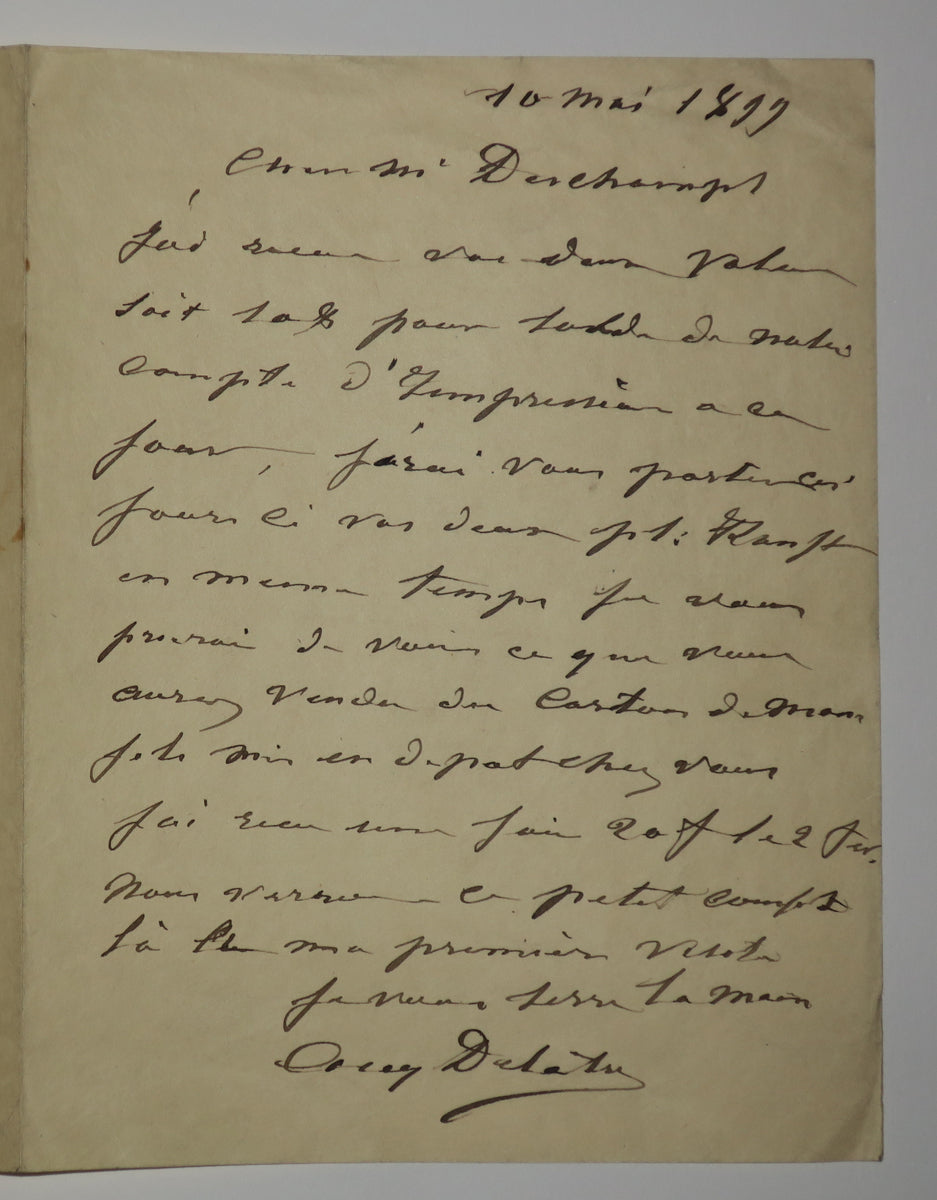 10 Mai 1899
Cher Mr Deschamps
J'ai recue vos deux Valeur
soit pour solde de notre
compte d'Impression a ce
jour, j'irai vous porter ces
jours ci vos deux pl: Ranft
en meme temps je vous
prierai de voir ce que vous
aurez vendu du Carton de mon
fils mis en depot chez vous
J'ai recu une fois 20f le 2 Fev.
Nous verrons ce petit compte
là ma première visite
Je vous serre la main
Delâtre